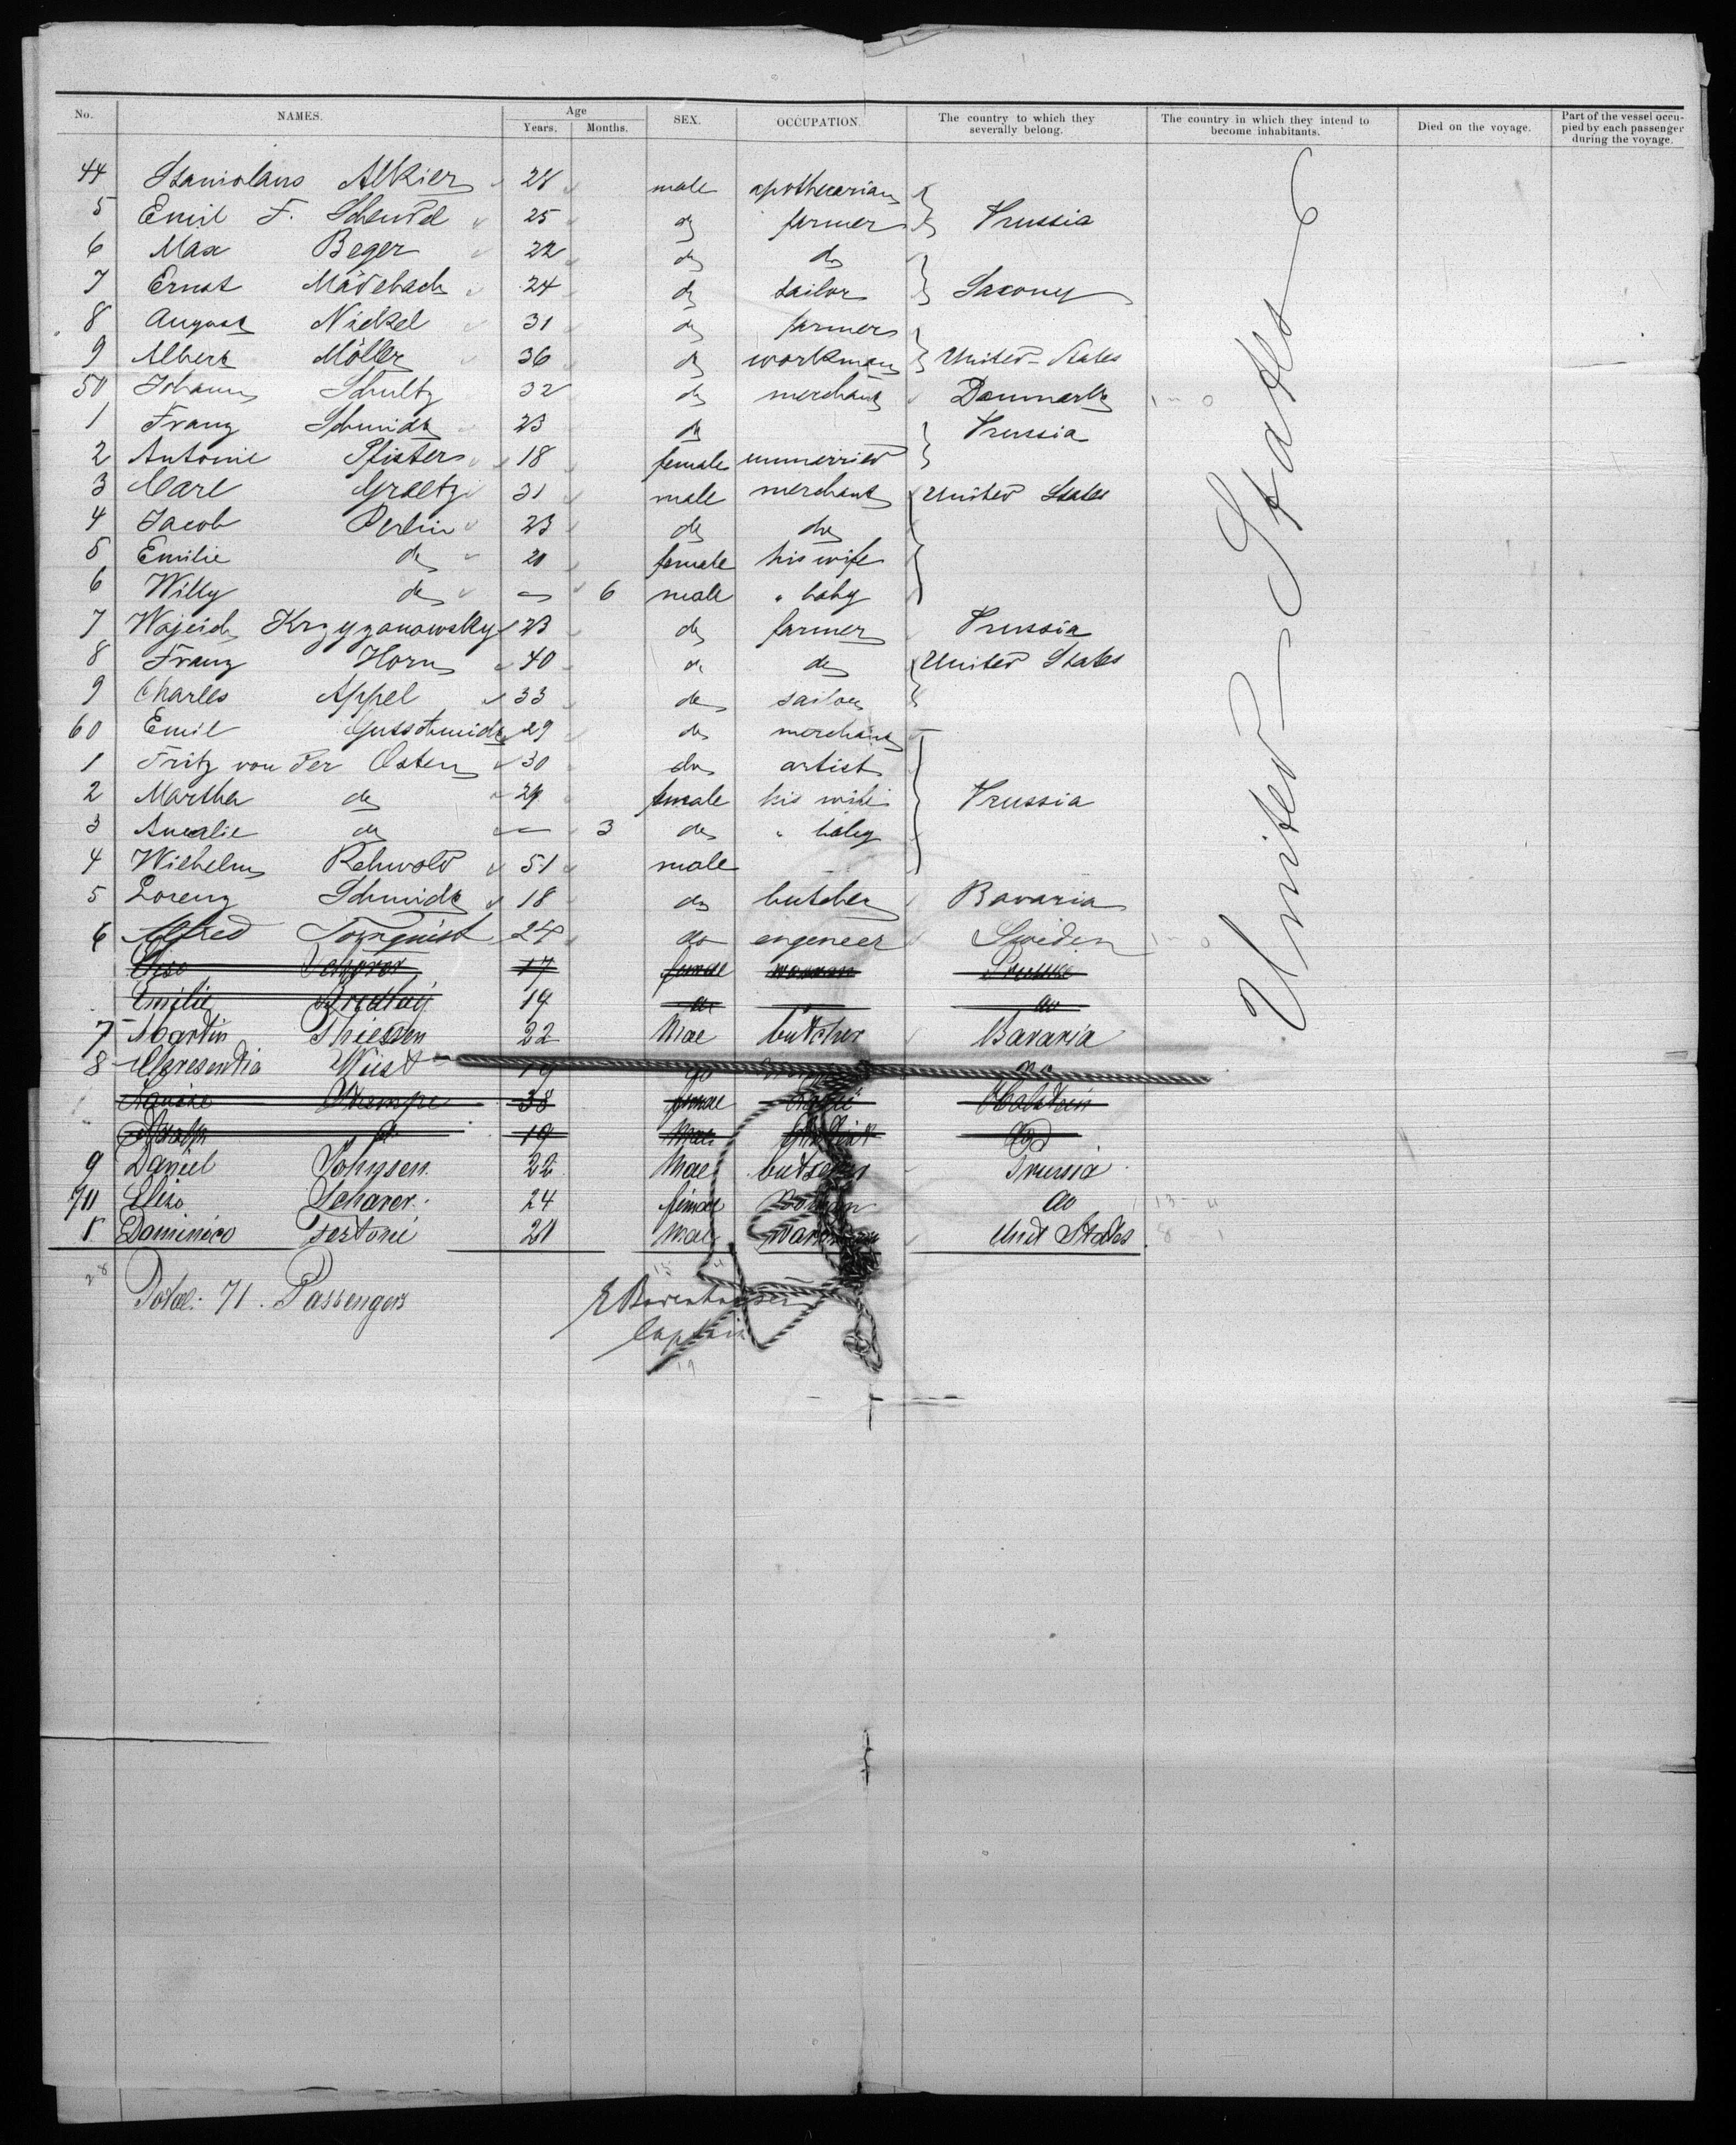 No. NAMES. Age Years. Months. SEX. OCCUPATION. The country to which they severally belong. The country in which they intend to become inhabitants. Died on the voyage. Part of the vessel occupied by each passenger during the voyage.
44 Stanislaus Alkier 28 male apothecarian
5 Emil F. 25 do farmer Prussia
6 Max Beger 22 do do
7 Ernst Mädebach 24 do tailor Saxony
8 August Nickel 31 do farmer
9 Albert Möller 36 do workman United States
50 Johann Schultz 32 do merchant Danmark
1 Franz Schmidt 23 do Prussia
2 Antonie Pfister 18 female unmerried
3 Carl Graetz 31 male merchant United States
4 Jacob Perlin 23 do do
5 Emilie do 20 female his wife
6 Willy do — 6 male " baby
7 Wojcich Krzyzanowsky 23 do farmer Prussia
8 Franz Horn 40 do do United States
9 Charles Appel 33 do sailor
60 Emil Gutsschmidt 29 do merchant
1 Fritz von der Osten 30 do artist
2 Martha do 29 female his wife Prussia
3 Amalie do — 3 do " baby
4 Wilhelm Rehwold 51 male
5 Lorenz Schmidt 18 do butcher Bavaria
6 Alfred Tornquist 24 do engeneer Sweden
17
Emilie 19 do do
7 Martin Thiessen 22 Mae butcher Bavaria
8 Cresentia Wüst 19 do
Stampe 38 Holstein
19
9 Daniel Johnsen 22 Mae butscher Prussia
70 Elise Scharer 24 do
1 Dominico Tertoni 21 Mae Unit States
Total: 71. Passengers
Captain
United States